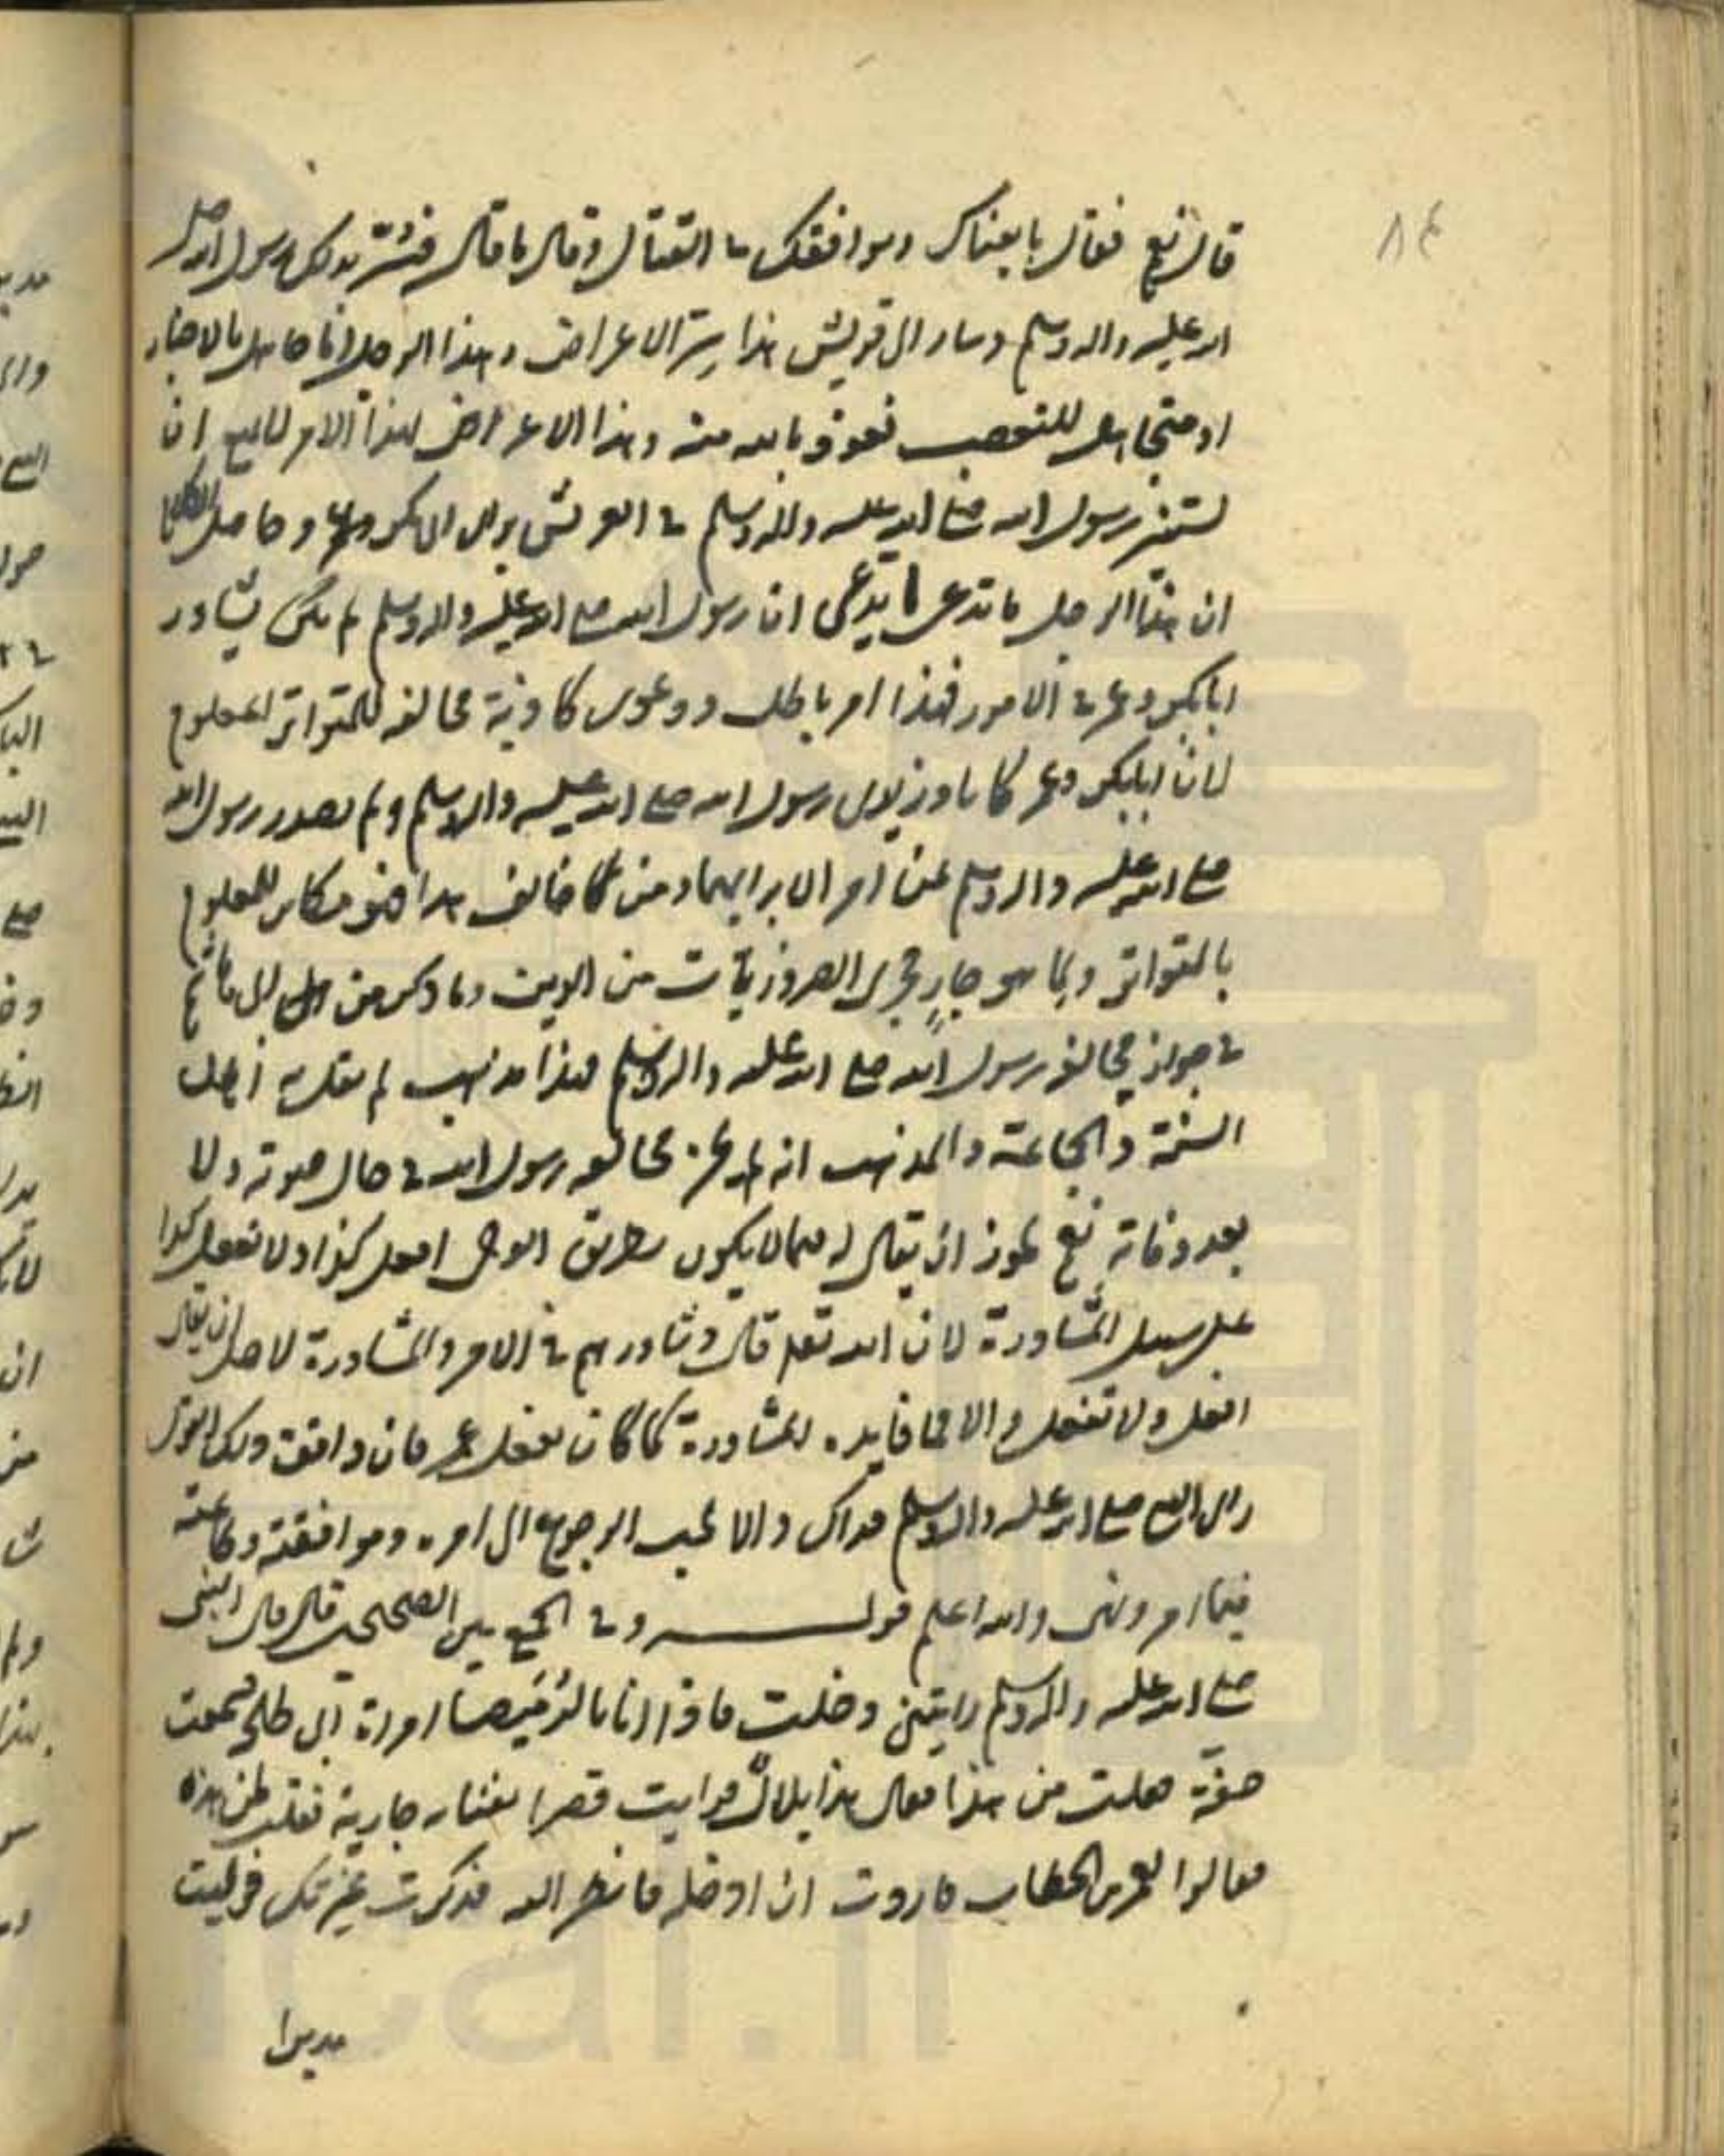 ٨٤
قال نعم فقال بايعناك وموافقك في القتال وقال ما قال فسر بذلك رسول الله صلى
الله عليه واله وسلم وسار الى قريش هذا سر الاعراض وهذا الرجل اما جاهل بالاخبار
او متجاهل للتعصب نعوذ بالله منه وهذا الاعراض لهذا الامر لا مع ان
رسول الله صلى الله عليه واله وسلم في العريش برأى ابى بكر وعمر وحاصل الكلام
ان هذا الرجل ما تدعى ما يدعى ان رسول الله صلى الله عليه واله وسلم لم يكن يشاور
ابابكر وعمر في الامور فهذا امر باطل ودعوى كاذبة مخالفه للمتواتر المعلوم
لان ابابكر وعمر كانا وزيرى رسول الله صلى الله عليه واله وسلم ولم يصدر رسول الله
صلى الله عليه واله وسلم عن امر الا برايهما ومن خالف هذا فهو مكابر للمعلوم
بالتواتر وبما هو جارٍ مجرى الضروريات من الدين وما ذكر من
في جواز مخالفة رسول الله صلى الله عليه واله وسلم فهذا مذهب لم يقل به اهل
السنة والجماعة والمذهب انه لم يجز مخالفه رسول الله في حال حيوته ولا
بعد وفاته نعم يجوز ان يقال له فيما لا يكون بطريق الوحى افعل كذا ولا تفعل كذا
على سبيل المشاورة لان الله تعالى قال وشاورهم في الامر والمشاورة لاجل ان يقال
افعل ولا تفعل والا فما فايده المشاورة كما كان يفعل عمر فان وافق ذلك القول
راى النبى صلى الله عليه واله وسلم فذاك والا يجب الرجوع الى امره وموافقته ومتابعته
فيما امر ونهى والله اعلم قوله وفي الجمع بين الصحيحين قال قال النبى
صلى الله عليه واله وسلم رايتنى دخلت فاذا انا بالرميصا امراة ابى طلحة وسمعت
خشفة فقلت من هذا فقال هذا بلال ورايت قصرا بفنائه جارية فقلت لمن هذه
فقالوا لعمر بن الخطاب فاردت ان ادخله فانظر اليه فذكرت غيرتك فوليت
مدبرا